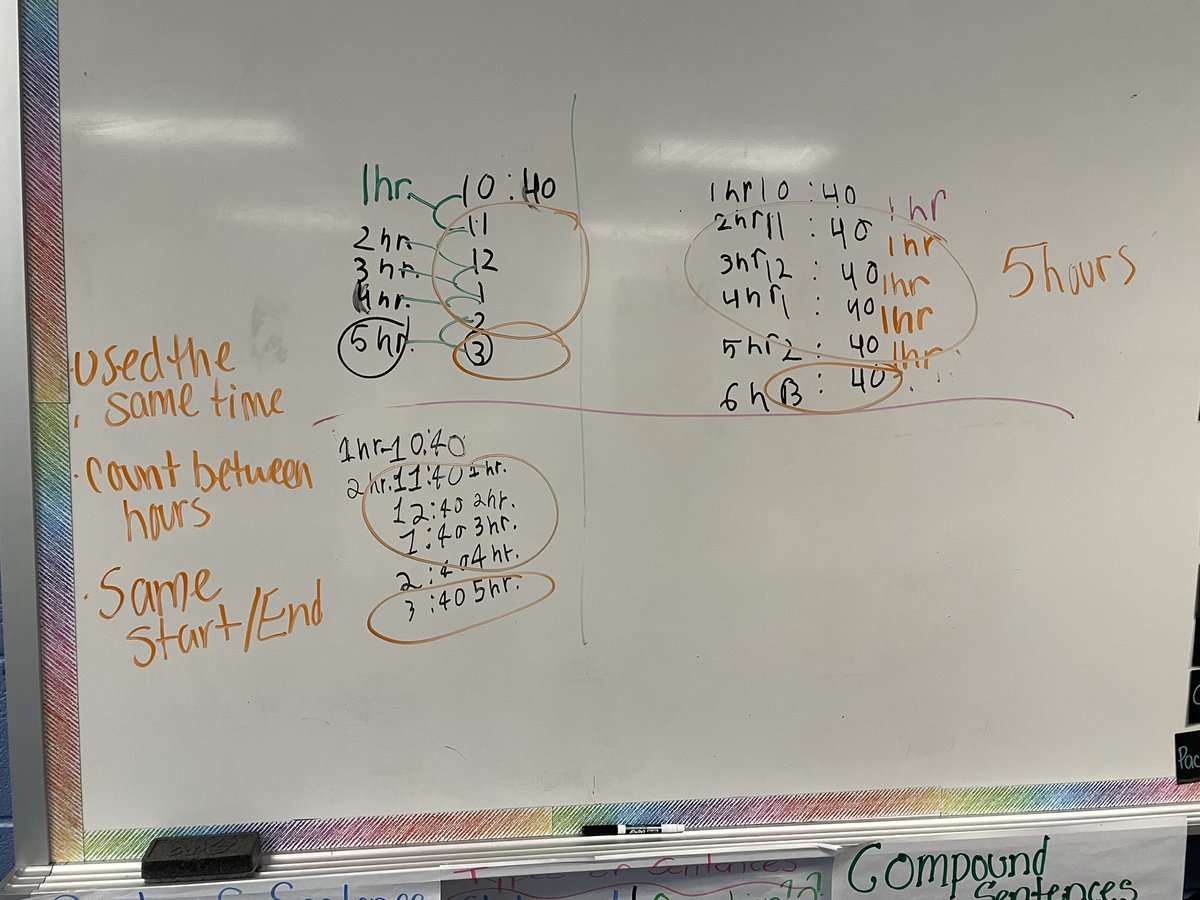 1hr. 10:40
11
2hr. 12
3hr. 1
4hr. 2
5hr. 3
1hr 10:40 1hr
2hr 11:40 1hr
3hr 12:40 1hr
4hr 1:40 1hr
5hr 2:40 1hr
6h 3:40
5 hours
1hr-10:40
2hr. 11:40 1hr.
12:40 2hr.
1:40 3hr.
2:40 4hr.
3:40 5hr.
· used the
same time
· count between
hours
· Same
Start/End
Pac
Types of Sentences
Compound
Sentences